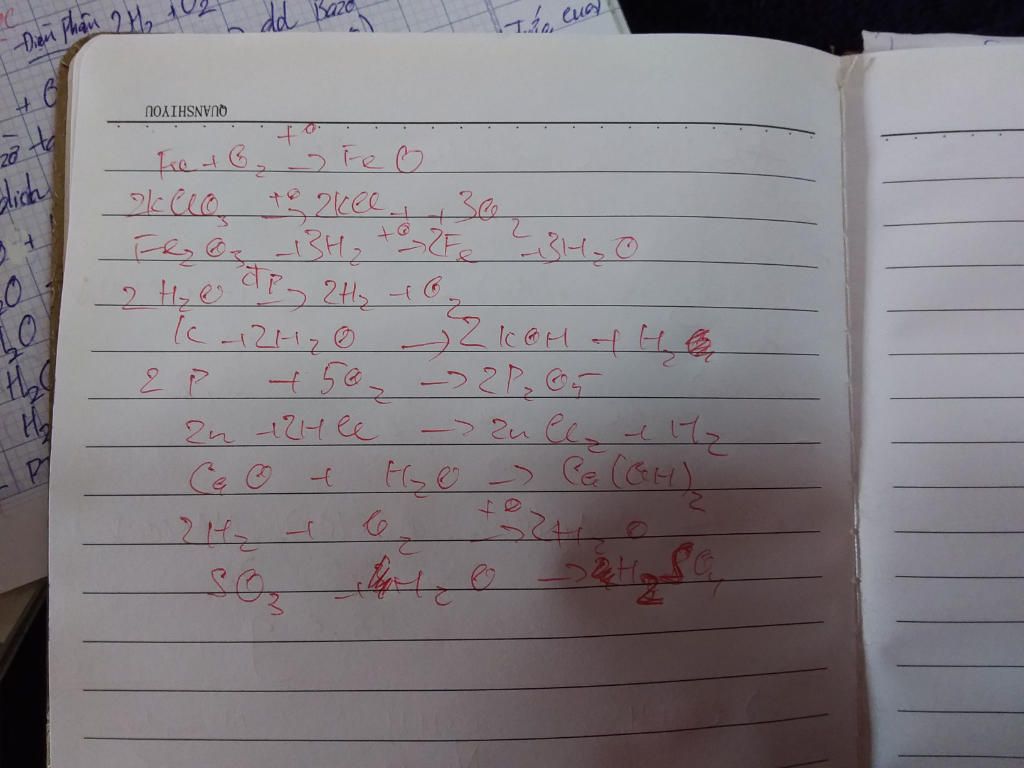 Điện phân 2H2 + O2
dd Bazơ
QUANSHIYOU
Fe + O2 —t°→ FeO
2KClO3 —t°→ 2KCl + + 3O2
Fe2O3 + 3H2 —t°→ 2Fe + 3H2O
2H2O —đp→ 2H2 + O2
K + 2H2O → 2KOH + H2
2P + 5O2 → 2P2O5
Zn + 2HCl → ZnCl2 + H2
CaO + H2O → Ca(OH)2
2H2 + O2 —t°→ 2H2O
SO3 + H2O → H2SO4